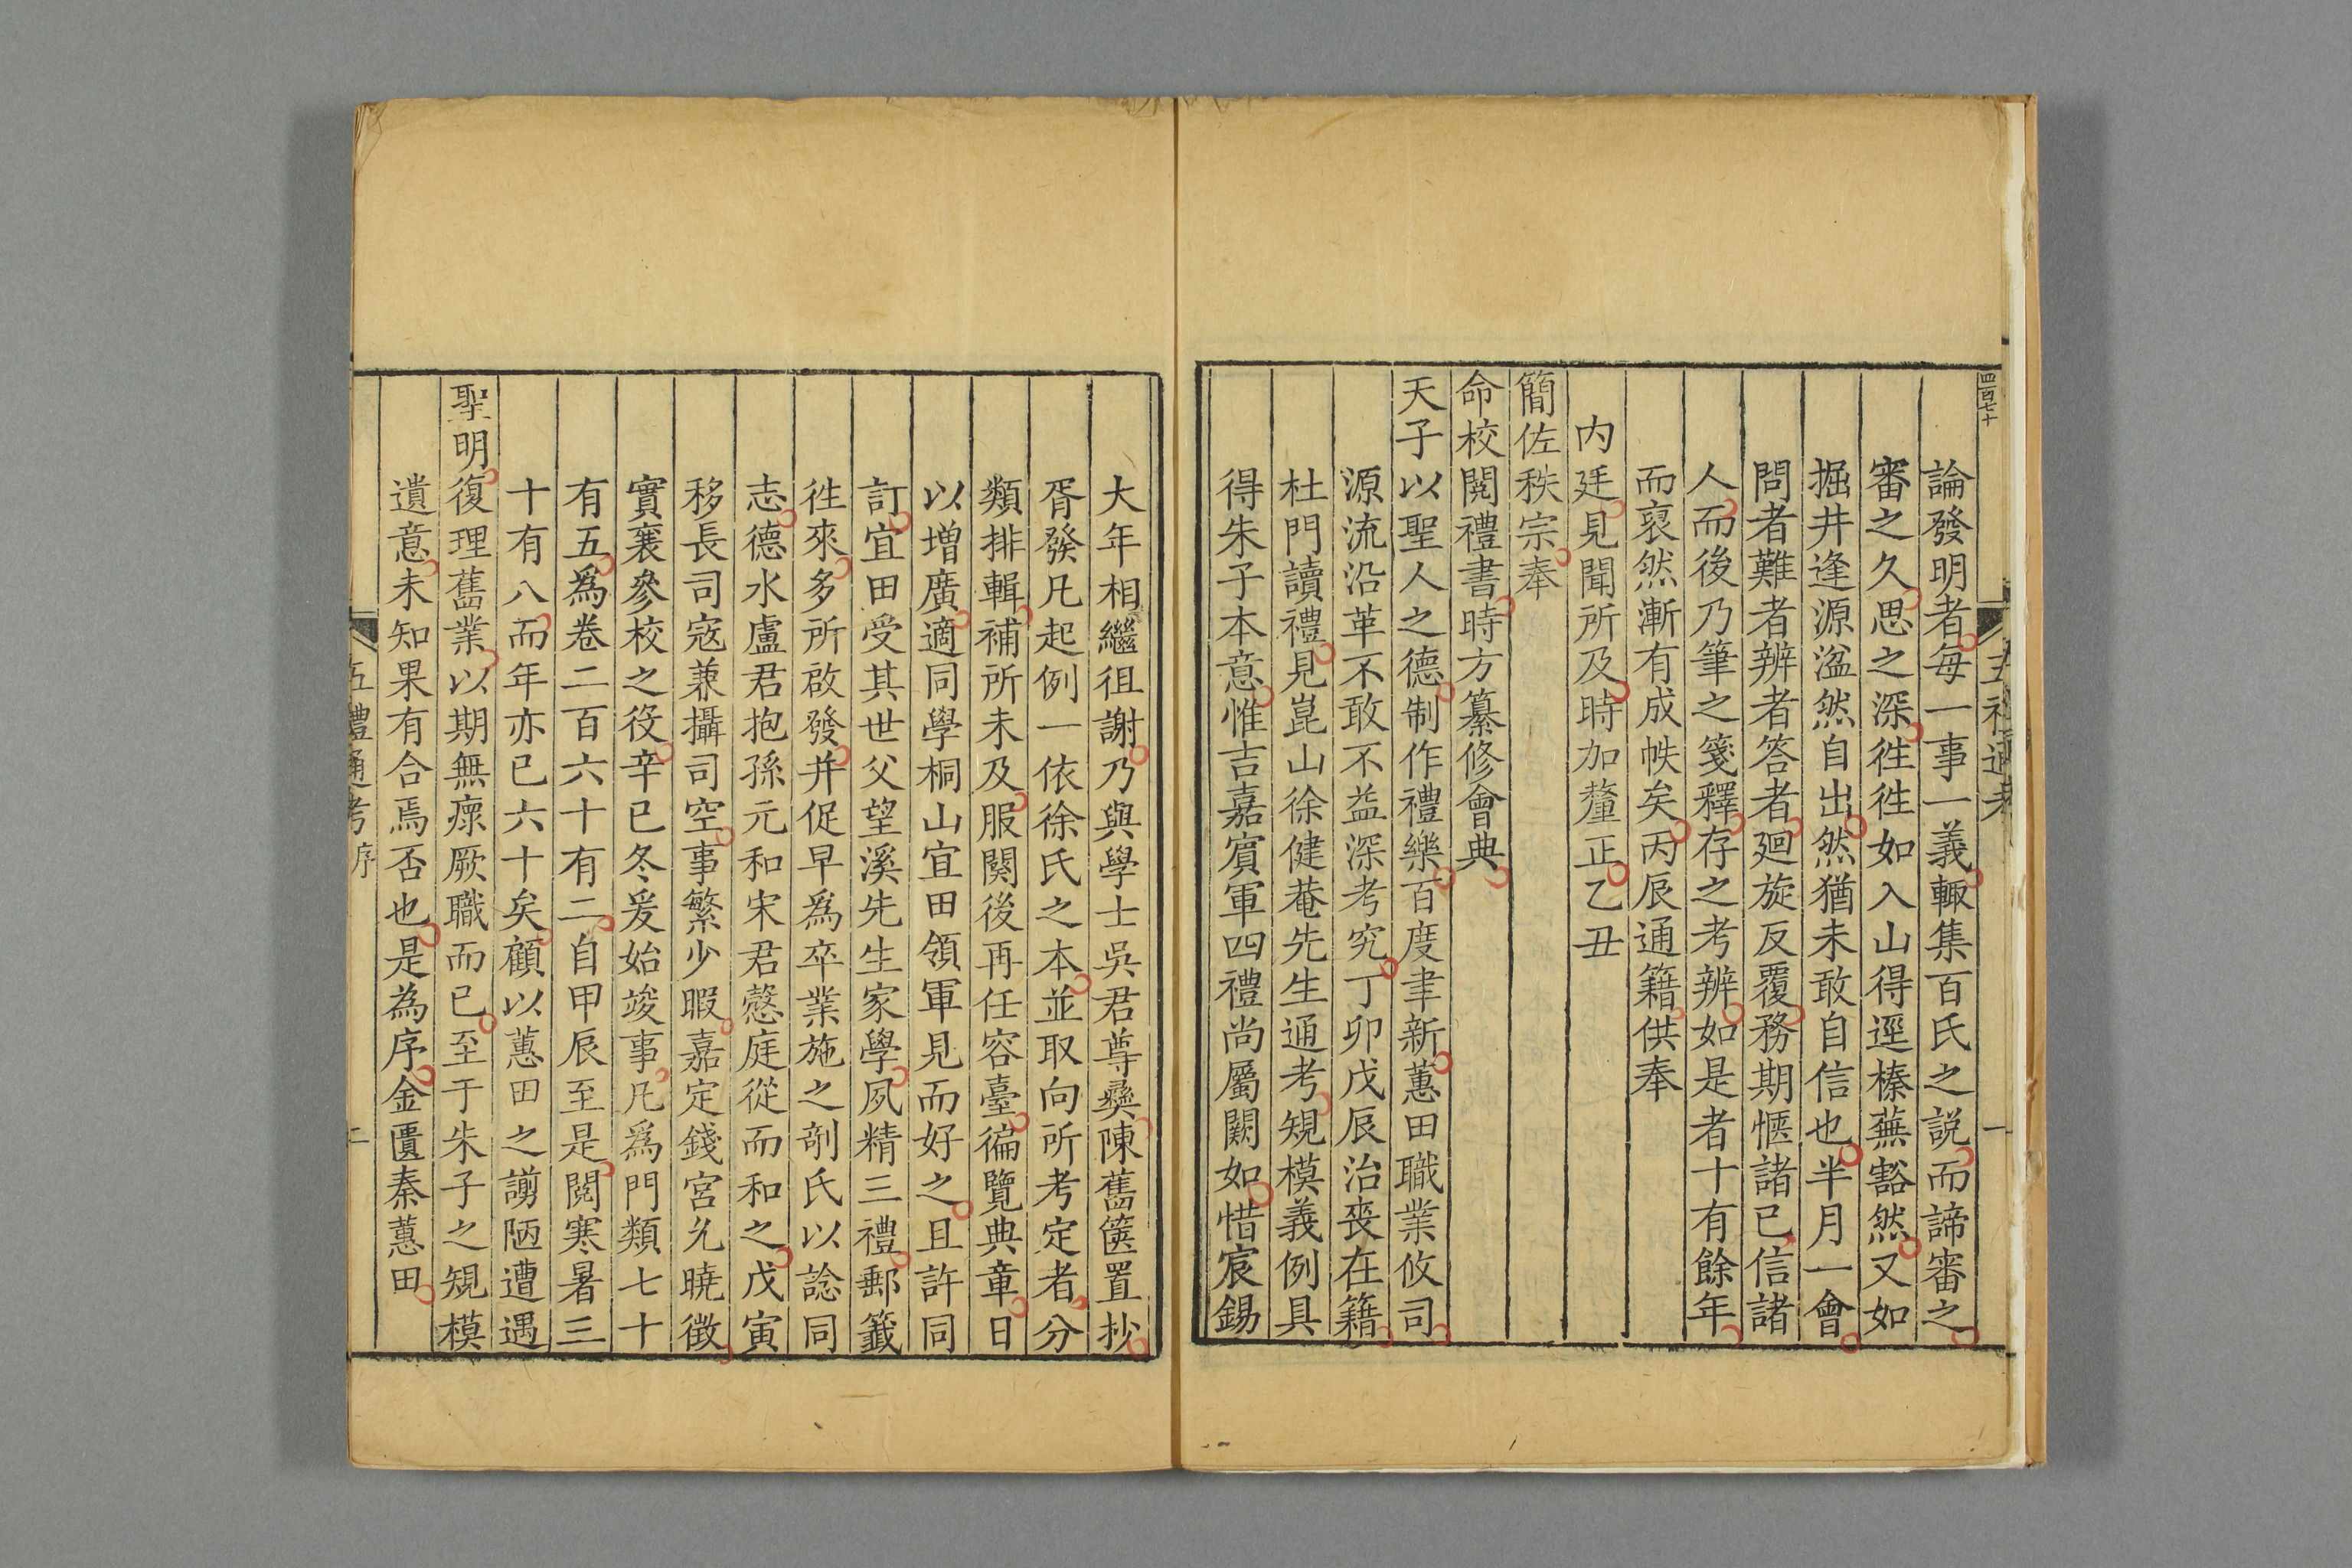 四百七十
五禮通考
一
論發明者每一事一義輙集百氏之説而諦審之
審之久思之深徃徃如入山得逕榛蕪豁然又如
掘井逢源湓然自出然猶未敢自信也半月一會
問者難者辨者答者廻旋反覆務期愜諸已信諸
人而後乃筆之箋釋存之考辨如是者十有餘年
而裒然漸有成帙矣丙辰通籍供奉
内廷見聞所及時加釐正乙丑
簡佐秩宗奉
命校閱禮書時方纂修會典
天子以聖人之德制作禮樂百度聿新蕙田職業攸司
源流沿革不敢不益深考究丁卯戊辰治喪在籍
杜門讀禮見崑山徐健菴先生通考䂓模義例具
得朱子本意惟吉嘉賔軍四禮尚屬闕如惜宸錫
大年相繼徂謝乃與學士吳君尊彝陳舊篋置抄
胥發凡起例一依徐氏之本並取向所考定者分
類排輯補所未及服闋後再任容臺徧覽典章日
以增廣適同學桐山宜田領軍見而好之且許同
訂宜田受其世父望溪先生家學夙精三禮郵籤
徃來多所啟發并促早為卒業施之剞氏以諗同
志德水盧君抱孫元和宋君慤庭從而和之戊寅
移長司寇兼攝司空事繁少暇嘉定錢宮允曉徵
實襄參校之役辛已冬爰始竣事凡爲門類七十
有五爲卷二百六十有二自甲辰至是閱寒暑三
十有八而年亦已六十矣顧以蕙田之謭陋遭遇
聖明復理舊業以期無瘝厥職而已至于朱子之䂓模
遺意未知果有合焉否也是為序金匱秦蕙田
五禮通考序
二